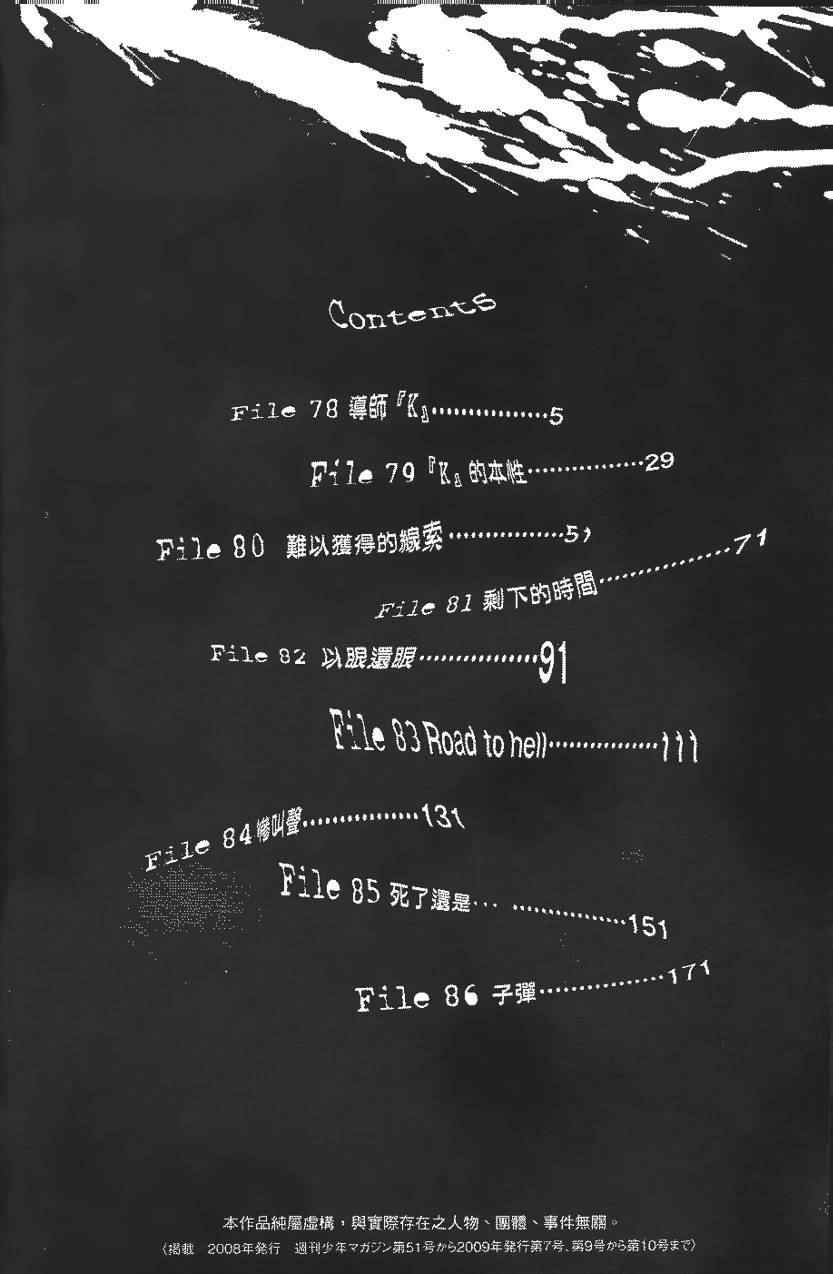 Contents
File 78 導師『K』……………5
File 79『K』的本性……………29
File 80 難以獲得的線索……………51
File 81 剩下的時間……………71
File 82 以眼還眼……………91
File 83 Road to hell……………111
File 84 慘叫聲……………131
File 85 死了還是… ……………151
File 86 子彈……………171
本作品純屬虛構，與實際存在之人物、團體、事件無關。
〈掲載 2008年発行 週刊少年マガジン第51号から2009年発行第7号、第9号から第10号まで〉